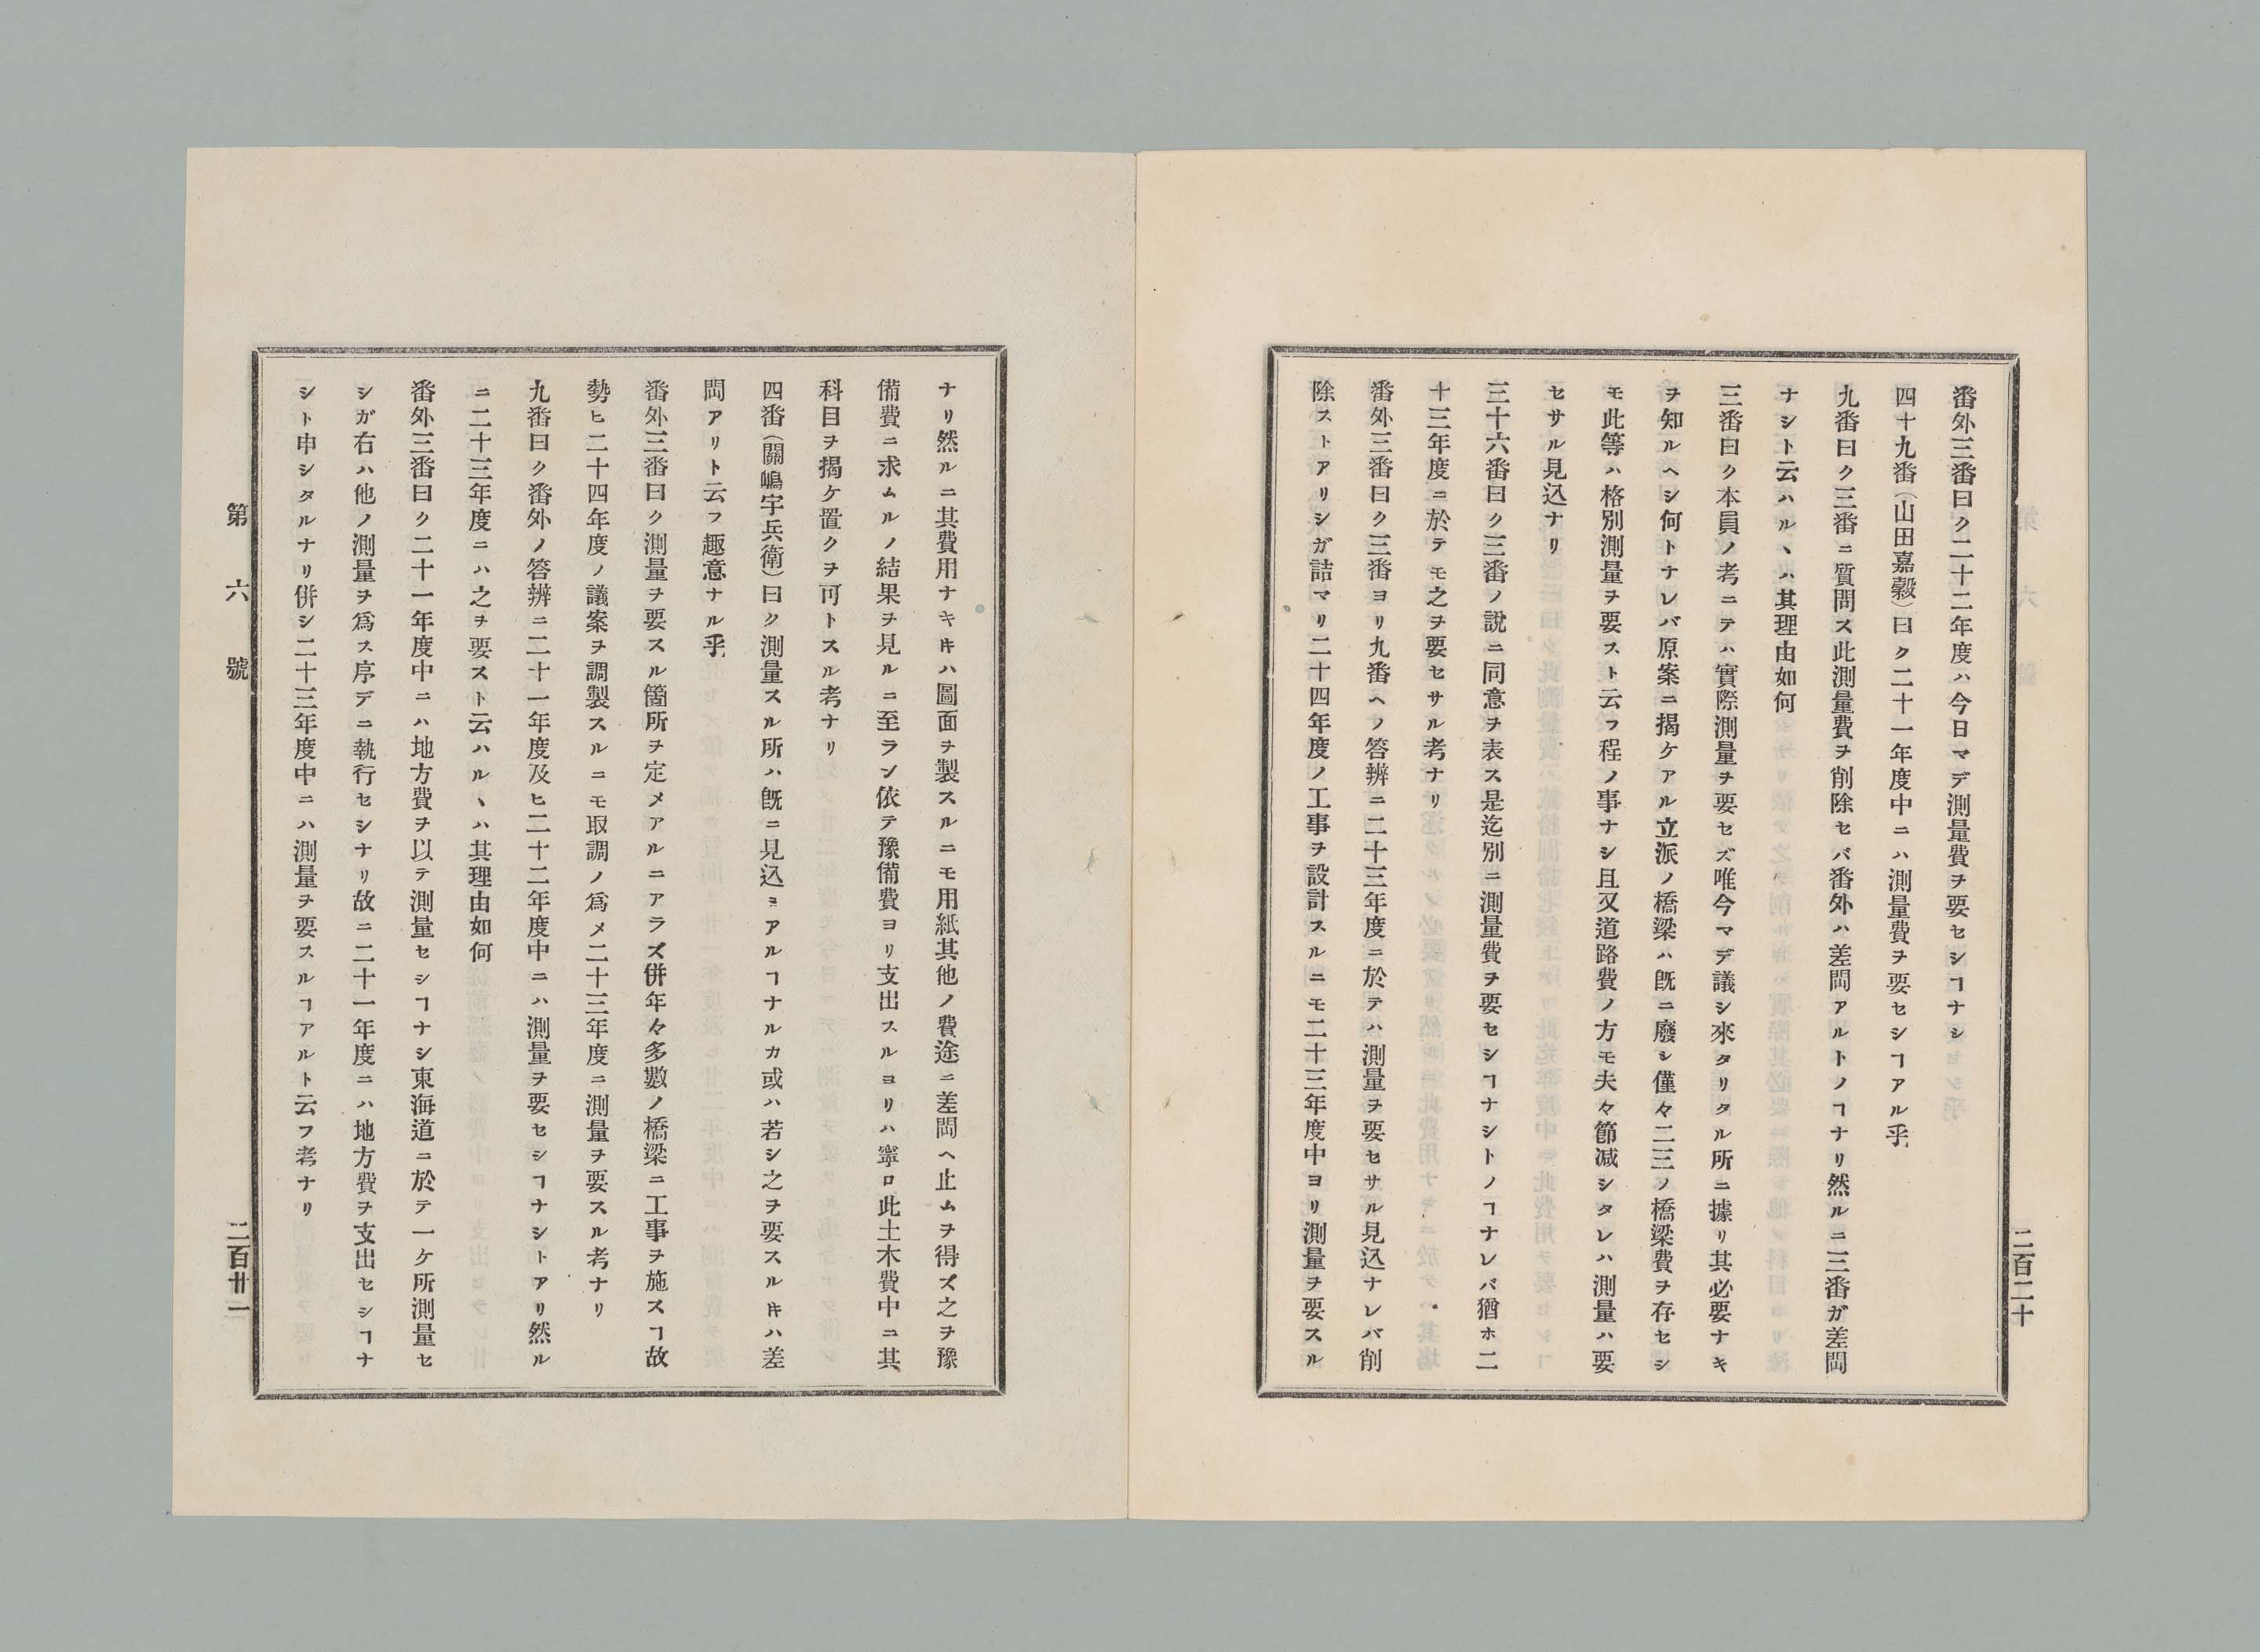 番外三番曰ク二十二年度ハ今日マデ測量費ヲ要セシヿナシ
四十九番(山田嘉穀)曰ク二十一年度中ニハ測量費ヲ要セシヿアル乎
九番曰ク三番ニ質問ス此測量費ヲ削除セバ番外ハ差閊アルトノヿナリ然ルニ三番ガ差閊
ナシト云ハルヽハ其理由如何
三番曰ク本員ノ考ニテハ實際測量ヲ要セズ唯今マデ議シ來タリタル所ニ據リ其必要ナキ
ヲ知ルヘシ何トナレバ原案ニ揭ケアル立派ノ橋梁ハ旣ニ廢シ僅々二三ノ橋梁費ヲ存セシ
モ此等ハ格別測量ヲ要スト云フ程ノ事ナシ且又道路費ノ方モ夫々節减シタレハ測量ハ要
セサル見込ナリ
三十六番曰ク三番ノ說ニ同意ヲ表ス是迄別ニ測量費ヲ要セシヿナシトノヿナレバ猶ホ二
十三年度ニ於テモ之ヲ要セサル考ナリ
番外三番曰ク三番ヨリ九番ヘノ答辨ニ二十三年度ニ於テハ測量ヲ要セサル見込ナレバ削
除ストアリシガ詰マリ二十四年度ノ工事ヲ設計スルニモ二十三年度中ヨリ測量ヲ要スル
二百二十
ナリ然ルニ其費用ナキ𪜈ハ圖面ヲ製スルニモ用紙其他ノ費途ニ差閊ヘ止ムヲ得ズ之ヲ豫
備費ニ求ムルノ結果ヲ見ルニ至ラン依テ豫備費ヨリ支出スルヨリハ寧ロ此土木費中ニ其
科目ヲ揭ケ置クヲ可トスル考ナリ
四番(關嶋宇兵衛)曰ク測量スル所ハ旣ニ見込ミアルヿナルカ或ハ若シ之ヲ要スル𪜈ハ差
閊アリト云フ趣意ナル乎
番外三番曰ク測量ヲ要スル箇所ヲ定メアルニアラズ併年々多數ノ橋梁ニ工事ヲ施スヿ故
勢ヒ二十四年度ノ議案ヲ調製スルニモ取調ノ爲メ二十三年度ニ測量ヲ要スル考ナリ
九番曰ク番外ノ答辨ニ二十一年度及ヒ二十二年度中ニハ測量ヲ要セシヿナシトアリ然ル
ニ二十三年度ニハ之ヲ要スト云ハルヽハ其理由如何
番外三番曰ク二十一年度中ニハ地方費ヲ以テ測量セシヿナシ東海道ニ於テ一ケ所測量セ
シガ右ハ他ノ測量ヲ爲ス序デニ執行セシナリ故ニ二十一年度ニハ地方費ヲ支出セシヿナ
シト申シタルナリ併シ二十三年度中ニハ測量ヲ要スルヿアルト云フ考ナリ
第六號
二百廿一